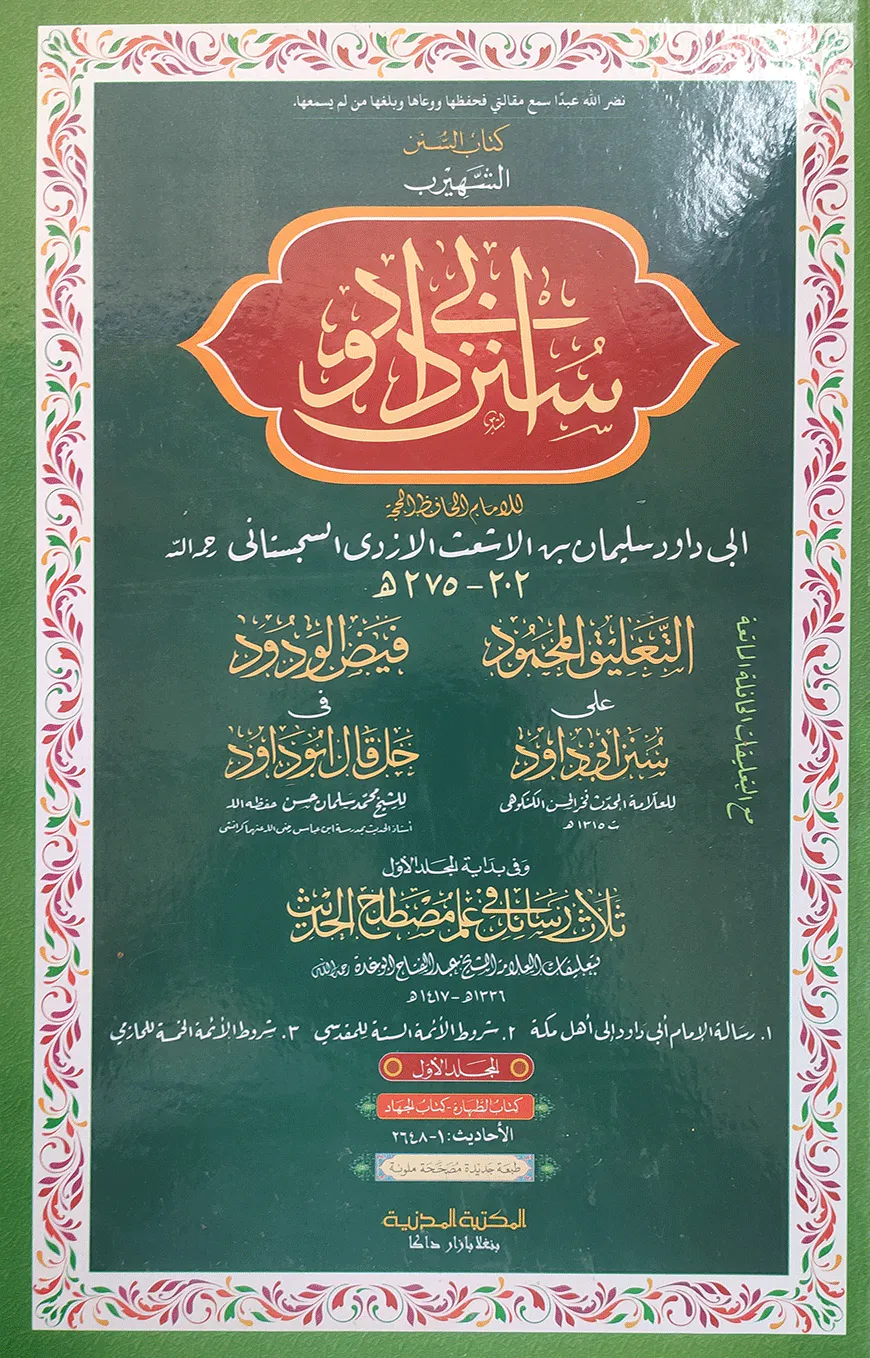 نضر الله عبدًا سمع مقالتي فحفظها ووعاها وبلغها من لم يسمعها.
كتاب السنن
الشهير ب
سنن أبي داود
للامام الحافظ الحجة
ابى داود سليمان بن الاشعث الازدى السجستانى رحمه الله
٢٠٢ – ٢٧٥ ھ
مع التعليقات الحافلة الماتعة
التعليق المحمود
على
سنن أبي داود
للعلامة المحدث فخر الحسن الكنكوهى
ت ١٣١٥ ھ
فيض الودود
فى
حل قال ابو داود
للشيخ محمد سلمان حسن حفظه الله
أستاذ الحديث بمدرسة ابن عباس رضى الله عنهما كراتشى
وفى بداية المجلد الأول
ثلاث رسائل في علم مصطلح الحديث
بتعليقات العلامة الشيخ عبد الفتاح ابو غدة رحمه الله
١٣٣٦ھ – ١٤١٧ ھ
١. رسالة الإمام أبي داود إلى أهل مكة ٢. شروط الأئمة الستة للمقدسي ٣. شروط الأئمة الخمسة للحازمي
المجلد الأول
كتاب الطهارة - كتاب الجهاد
الأحاديث: ١-٢٦٤٨
طبعة جديدة مصححة ملونة
المكتبة المدنية
بنغلا بازار داكا